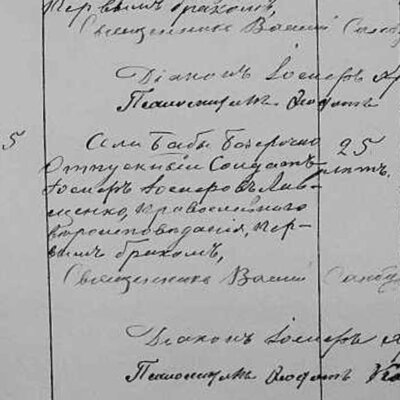 первымъ бракомъ,
Священникъ Василій
Діаконъ Іосифъ
Псаломщикъ
5 Села Бабы безсрочно 25
Отпускный Солдатъ лѣтъ.
Іосифъ Іосифовъ Лав-
щенко, православнаго
вѣроисповѣданія, пер-
вымъ бракомъ,
Священникъ Василій
Діаконъ Іосифъ
Псаломщикъ